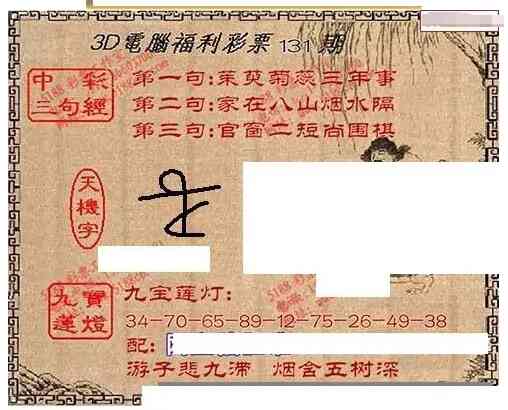 3D電腦福利彩票131期
中彩
三句經
第一句:茱萸菊蕊三年事
第二句:家在八山烟水隔
第三句:官窗二短尚围棋
天機字
九寶
蓮燈
九宝莲灯:
34-70-65-89-12-75-26-49-38
配:
游子悲九滞 烟含五树深